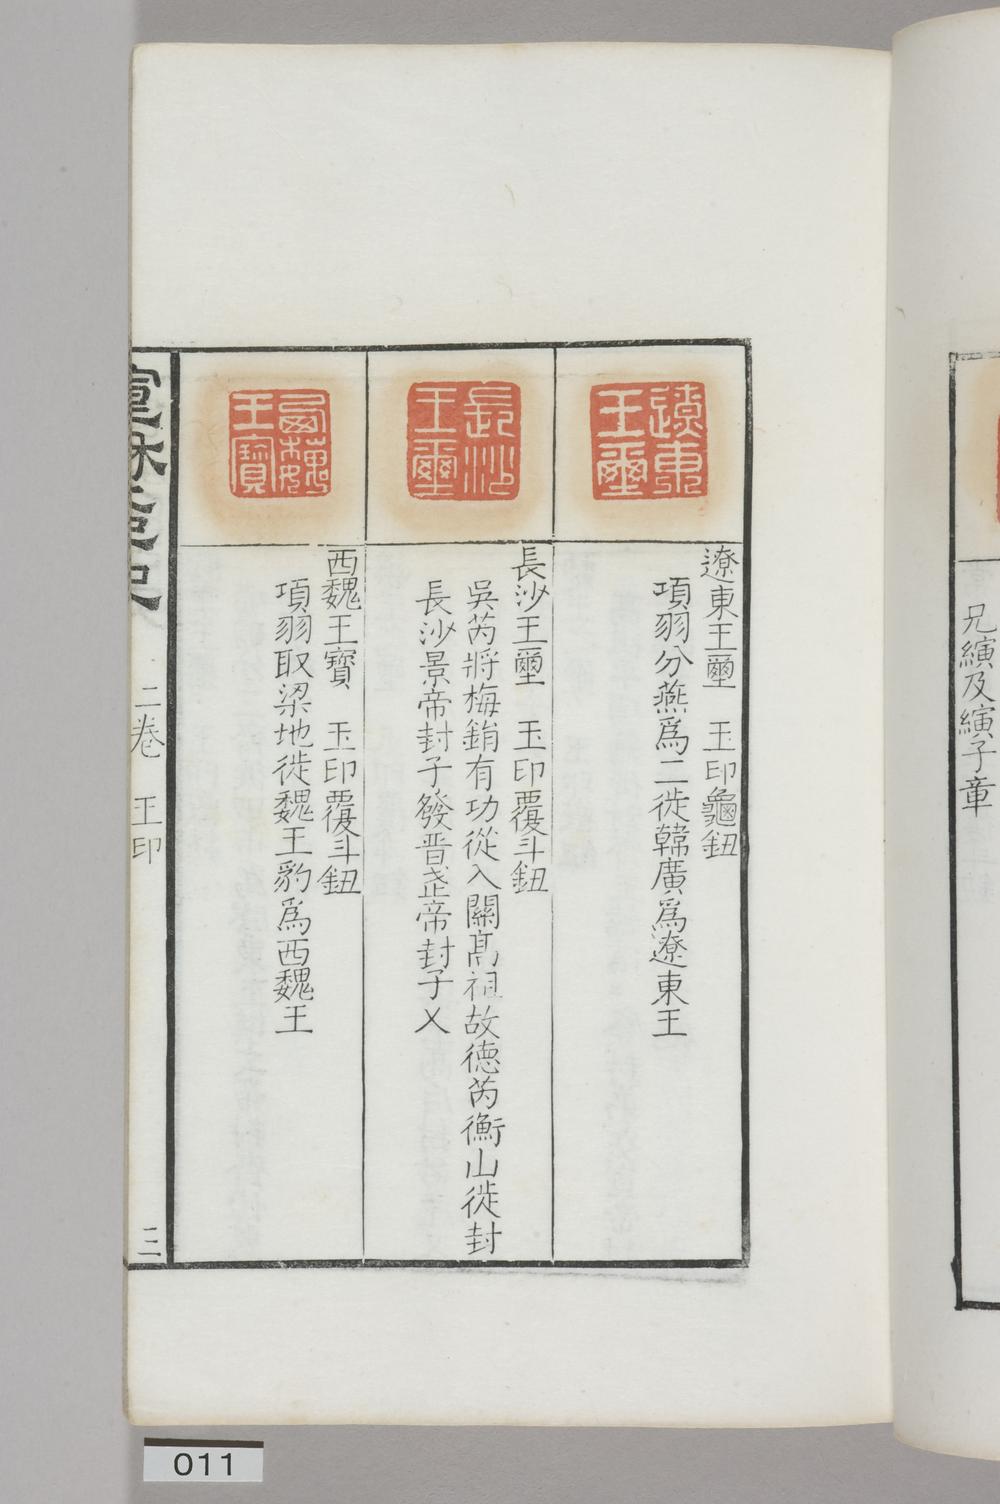 兄縯及縯子章
遼東王璽
遼東王壐　玉印龜鈕
項羽分燕爲二徙韓廣爲遼東王
長沙王璽
長沙王壐　玉印覆斗鈕
吳芮將梅鋗有功從入關髙祖故德芮衡山徙封
長沙景帝封子發晉武帝封子乂
西魏王寶
西魏王寶　玉印覆斗鈕
項羽取梁地徙魏王豹爲西魏王
宣和集古印史　二卷　王印　三
011